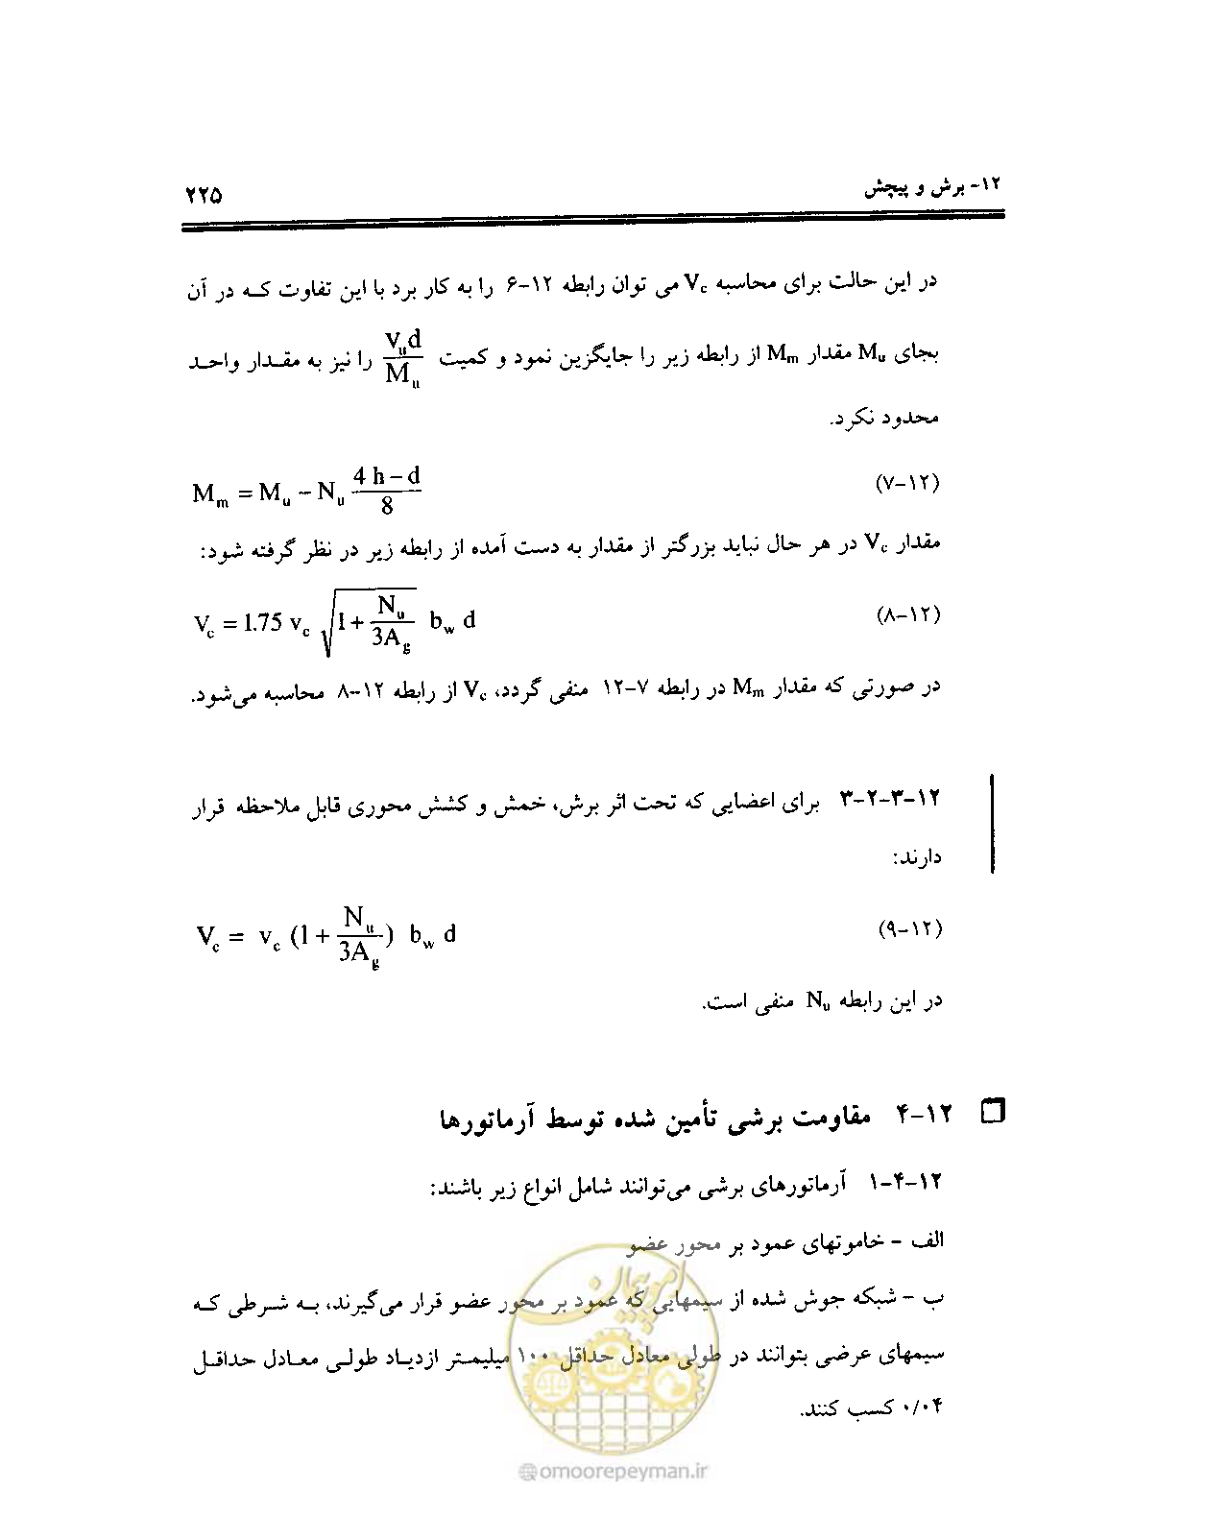 ۱۲- برش و پیچش ۲۲۵
در این حالت برای محاسبه Vc می توان رابطه ۱۲-۶ را به کار برد با این تفاوت کـه در آن
بجای Mu مقدار Mm از رابطه زیر را جایگزین نمود و کمیت Vud/Mu را نیز به مقـدار واحـد
محدود نکرد.
Mm = Mu − Nu (4h − d)/8 (۷-۱۲)
مقدار Vc در هر حال نباید بزرگتر از مقدار به دست آمده از رابطه زیر در نظر گرفته شود:
Vc = 1.75 vc √(1 + Nu/3Ag) bw d (۸-۱۲)
در صورتی که مقدار Mm در رابطه ۷-۱۲ منفی گردد، Vc از رابطه ۱۲-۸ محاسبه می‌شود.
۱۲-۳-۲-۳ برای اعضایی که تحت اثر برش، خمش و کشش محوری قابل ملاحظه قرار
دارند:
Vc = vc (1 + Nu/3Ag) bw d (۹-۱۲)
در این رابطه Nu منفی است.
۱۲-۴ مقاومت برشی تأمین شده توسط آرماتورها
۱۲-۴-۱ آرماتورهای برشی می‌توانند شامل انواع زیر باشند:
الف - خاموتهای عمود بر محور عضو
ب - شبکه جوش شده از سیمهایی که عمود بر محور عضو قرار می‌گیرند، بـه شـرطی کـه
سیمهای عرضی بتوانند در طولی معادل حداقل ۱۰۰ میلیمـتر ازدیـاد طولـی معـادل حداقـل
۰/۰۴ کسب کنند.
امور پیمان
@omoorepeyman.ir